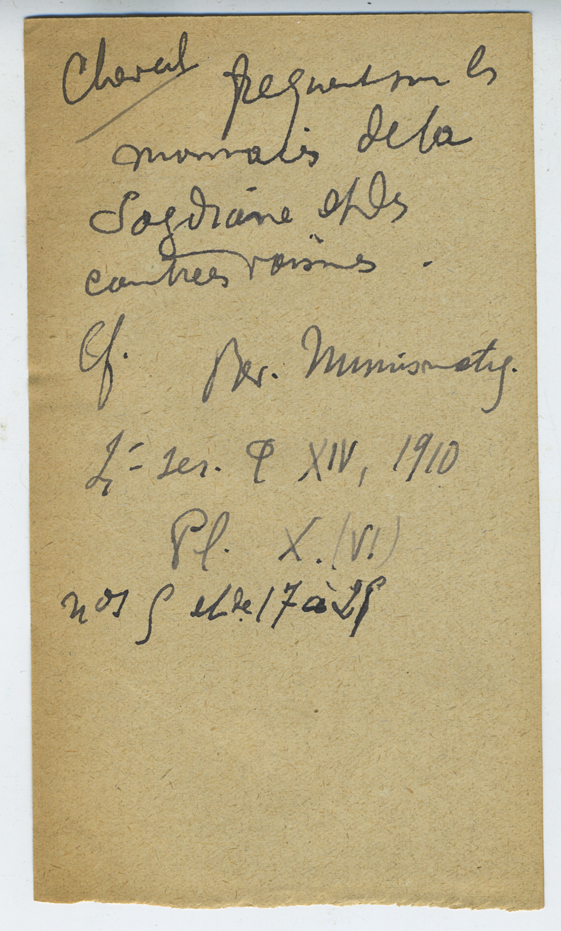 Cheval frequent sur les
monnaies de la
Sogdiane et des
contrées voisines.
Cf. Rev. Numismatiq.
4e ser. T XIV, 1910
Pl. X. (VI)
nos 5 et de 17 à 25